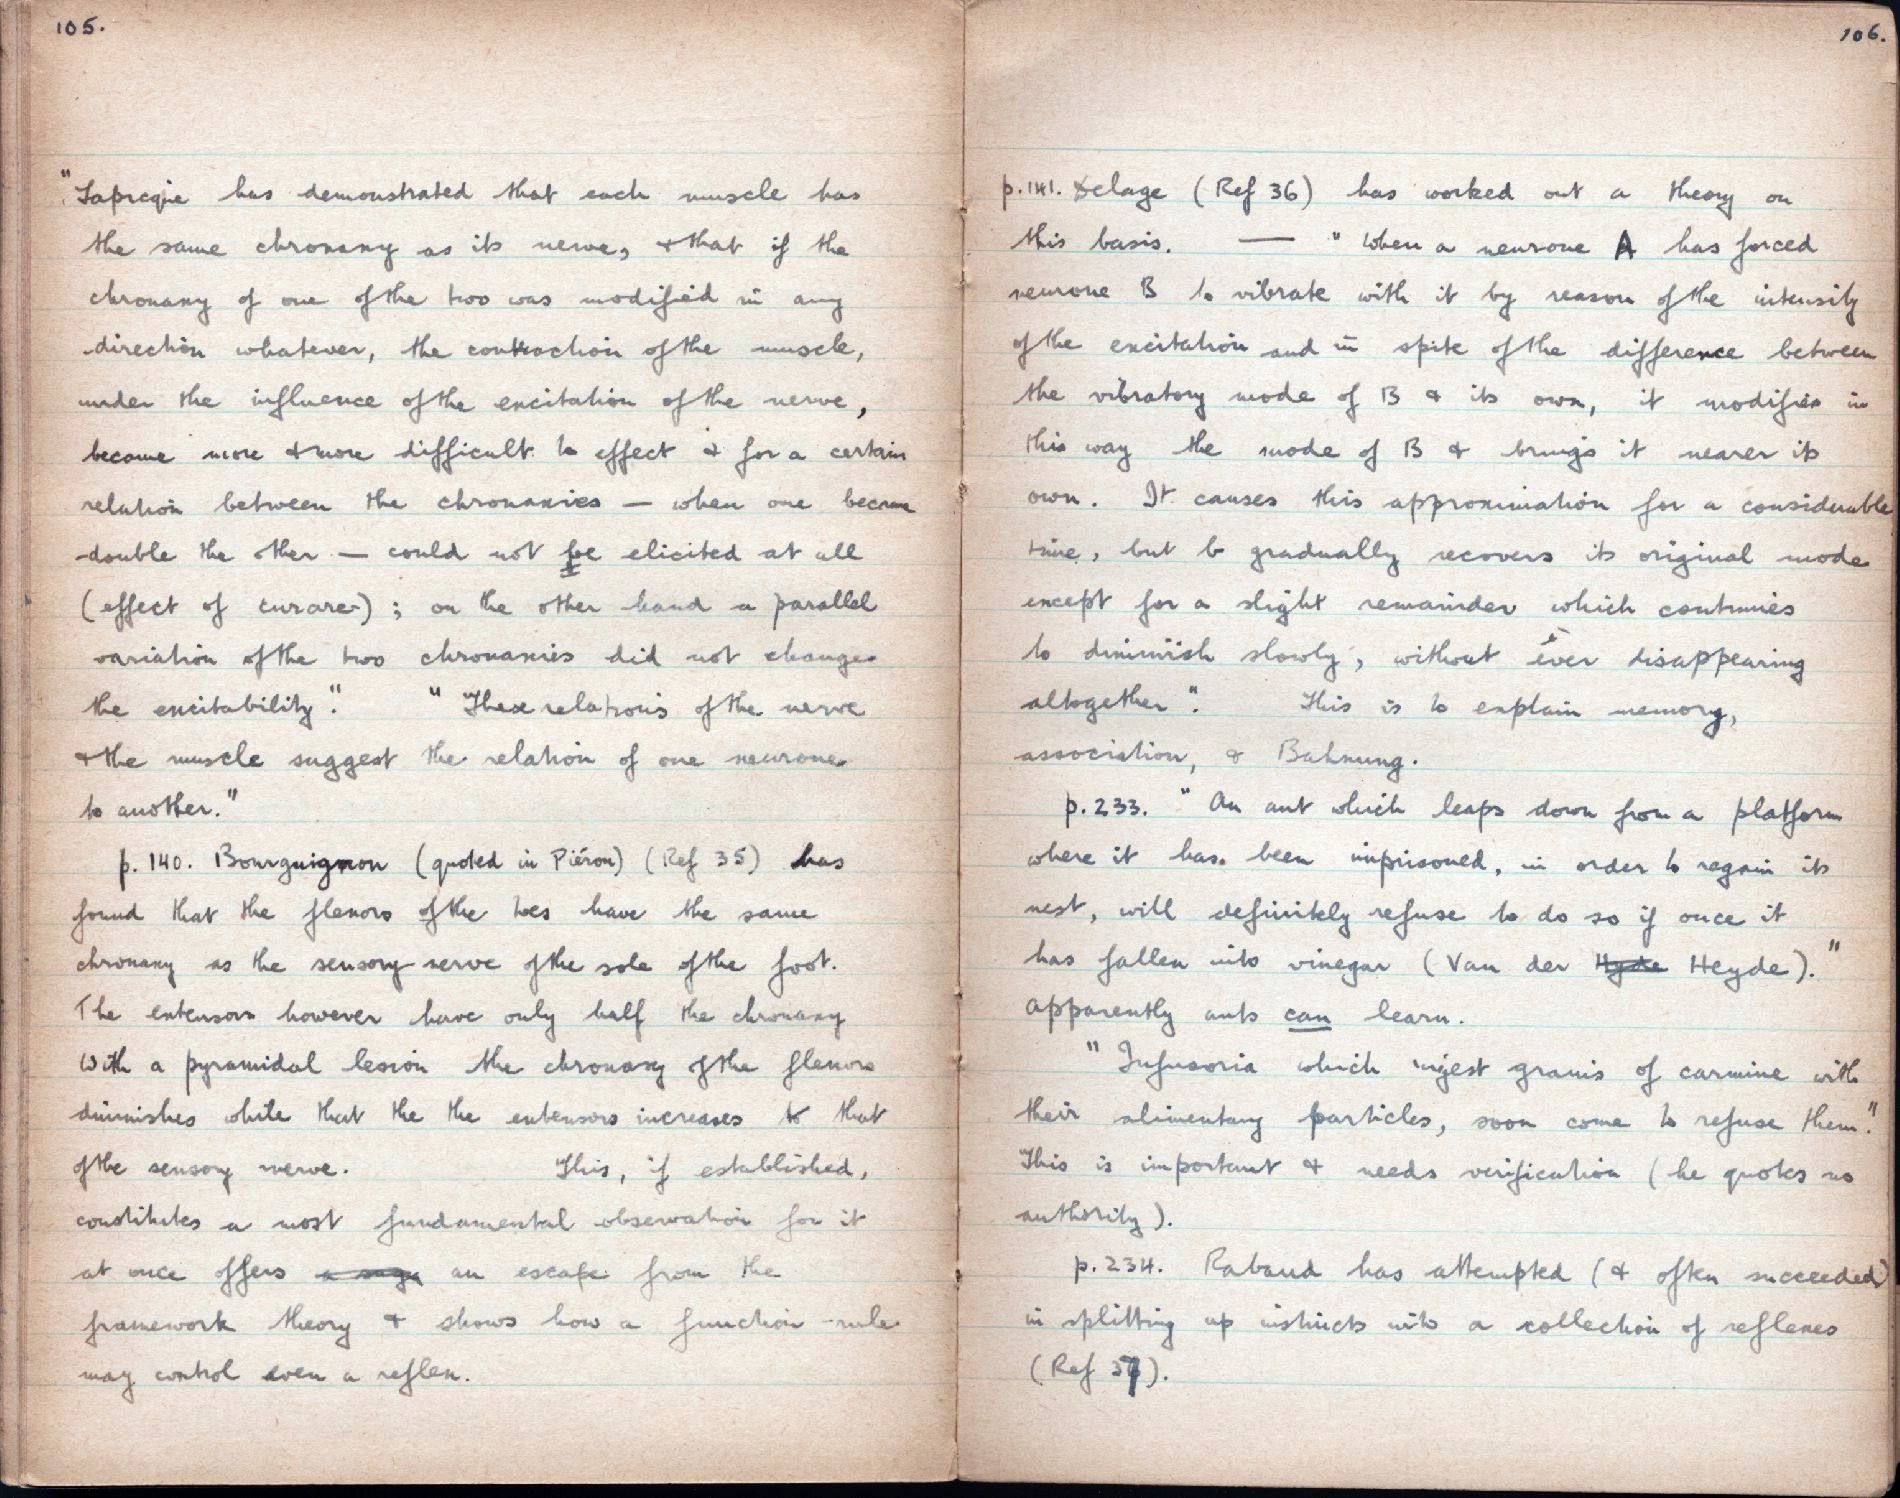 105.
"Lapicque has demonstrated that each muscle has
the same chronaxy as its nerve, & that if the
chronaxy of one of the two was modified in any
direction whatever, the contraction of the muscle,
under the influence of the excitation of the nerve,
became more & more difficult to effect & for a certain
relation between the chronaxies — when one became
double the other — could not be elicited at all
(effect of curare) ; on the other hand a parallel
variation of the two chronaxies did not change
the excitability". "These relations of the nerve
& the muscle suggest the relation of one neurone
to another."
p. 140. Bourguignon (quoted in Piéron) (Ref 35) has
found that the flexors of the toes have the same
chronaxy as the sensory nerve of the sole of the foot.
The extensors however have only half the chronaxy
With a pyramidal lesion the chronaxy of the flexors
diminishes while that the the extensors increases to that
of the sensory nerve. This, if established,
constitutes a most fundamental observation for it
at once offers an escape from the
framework theory & shows how a function-rule
may control even a reflex.
106.
p.141. Delage (Ref 36) has worked out a theory on
this basis. — "When a neurone A has forced
neurone B to vibrate with it by reason of the intensity
of the excitation and in spite of the difference between
the vibratory mode of B & its own, it modifies in
this way the mode of B & brings it nearer its
own. It causes this approximation for a considerable
time, but b gradually recovers its original mode
except for a slight remainder which continues
to diminish slowly, without ever disappearing
altogether". This is to explain memory,
association, & Bahnung.
p.233. "An ant which leaps down from a platform
where it has been imprisoned, in order to regain its
nest, will definitely refuse to do so if once it
has fallen into vinegar (Van der Hyde Heyde)."
Apparently ants can learn.
"Infusoria which ingest grains of carmine with
their alimentary particles, soon come to refuse them."
This is important & needs verification (he quotes no
authority).
p.234. Rabaud has attempted (& often succeeded)
in splitting up instincts into a collection of reflexes
(Ref 37).